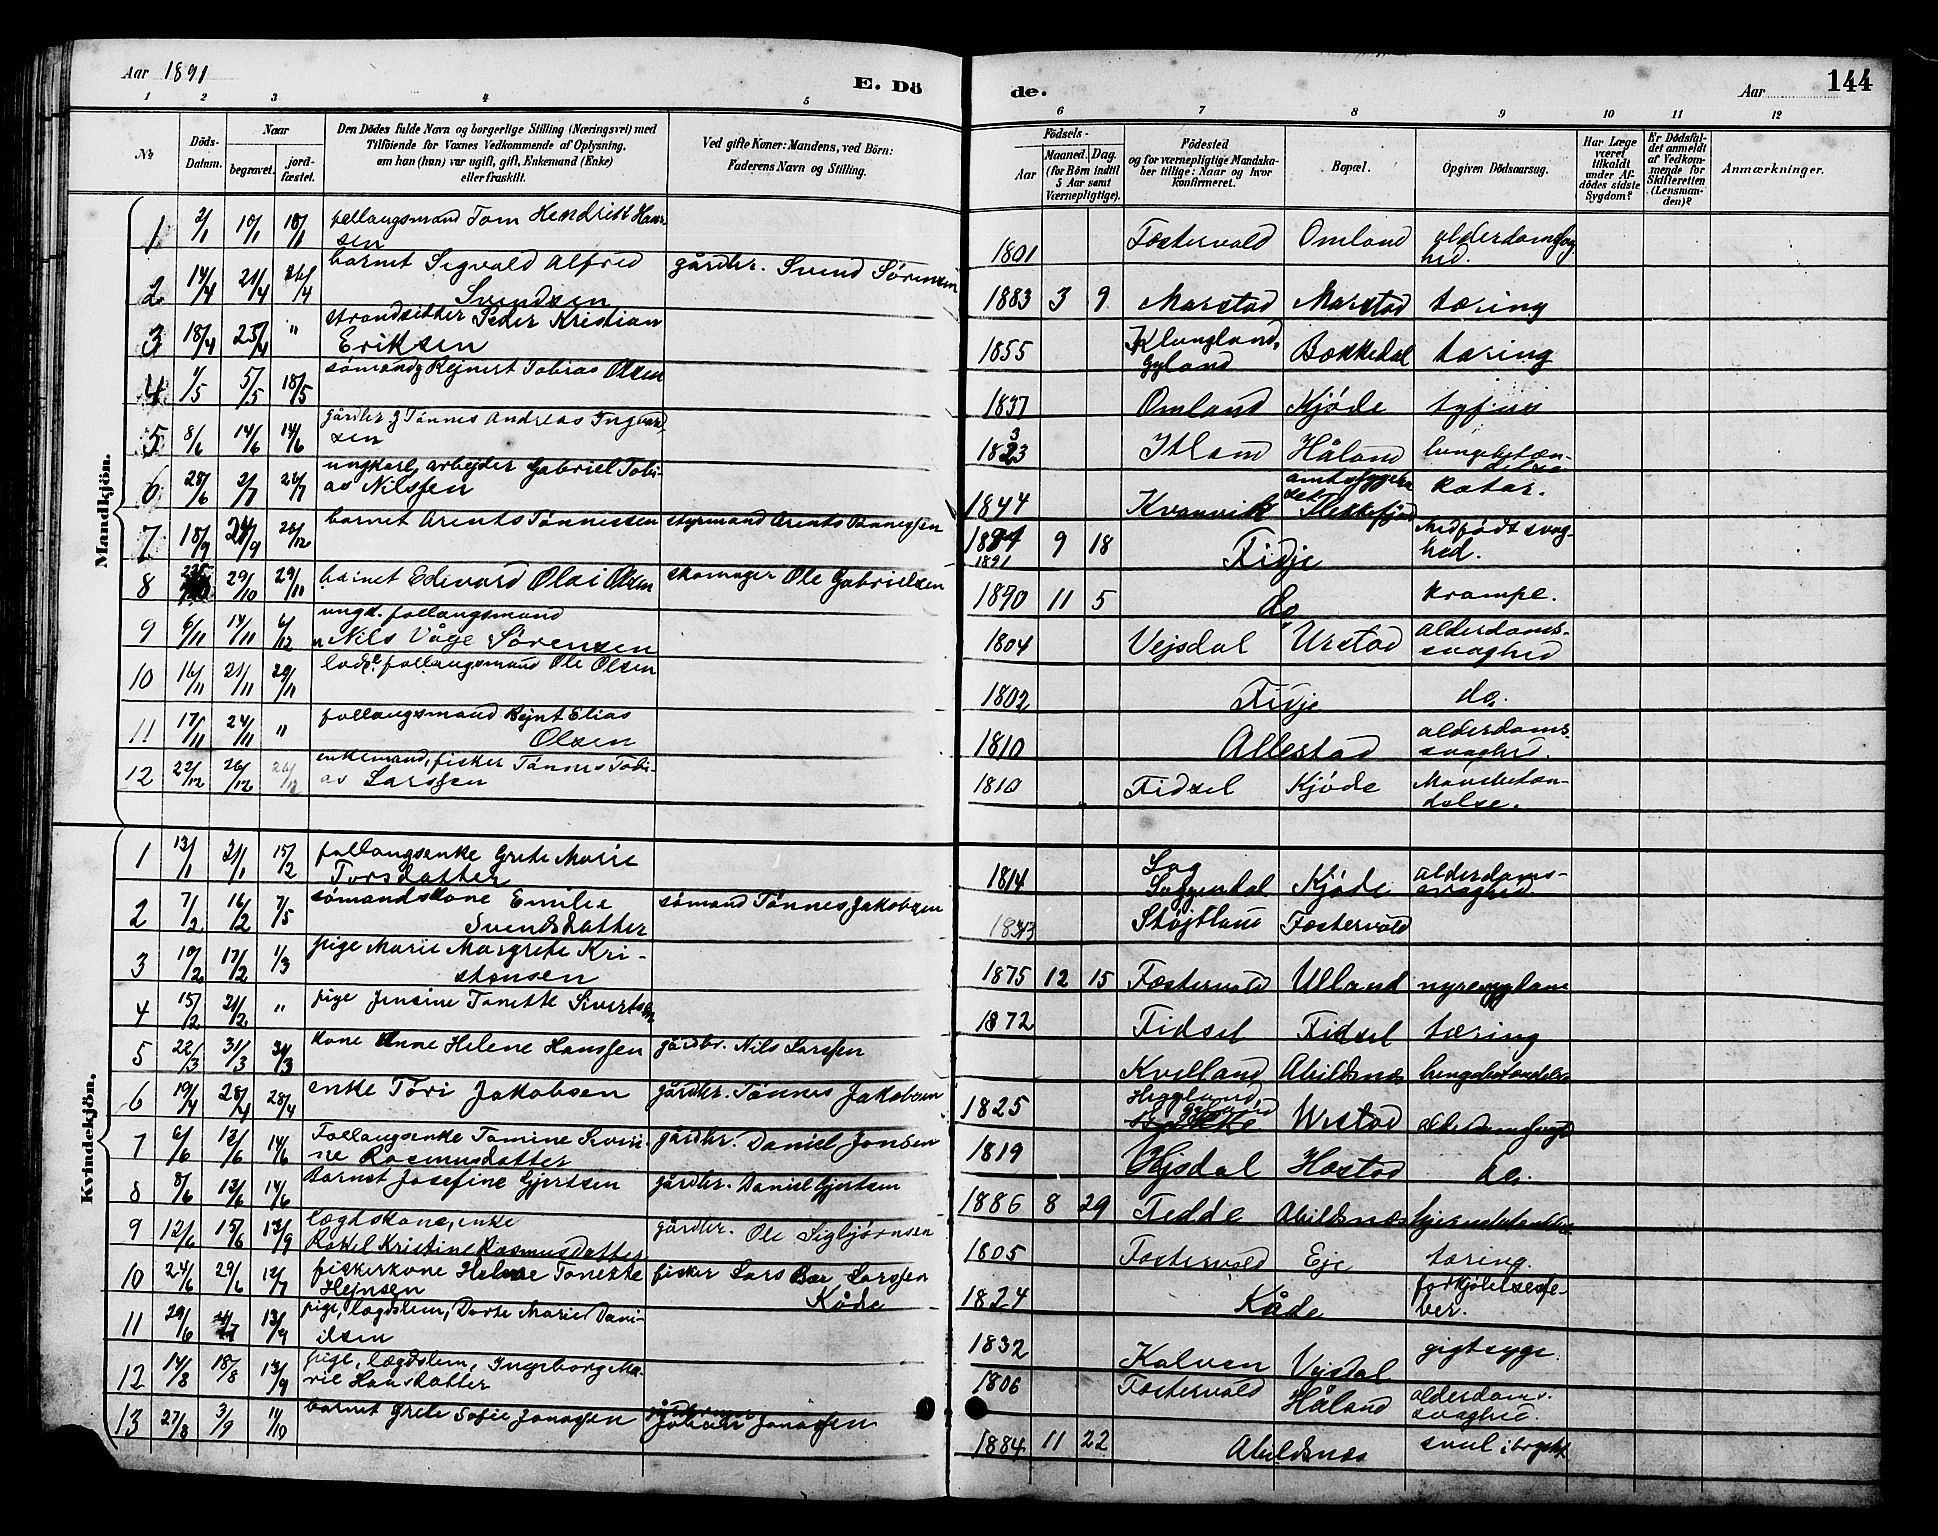 Aar 1891
E. Dö
de.
Aar
144
1 2 3 4 5 6 7 8 9 10 11 12
No
Döds-Datum.
Naar
begravet.
jord-fæstet.
Den Dödes fulde Navn og borgerlige Stilling (Næringsvei) med Tilföiende for Voxnes Vedkommende af Oplysning, om han (hun) var ugift, gift, Enkemand (Enke) eller fraskilt.
Ved gifte Koner: Mandens, ved Börn: Faderens Navn og Stilling.
Födsels-
Aar
Maaned. Dag.
(for Börn indtil 5 Aar samt Værnepligtige).
Födested
og for værnepligtige Mandskaber tillige: Naar og hvor konfirmeret.
Bopæl.
Opgiven Dödsaarsag.
Har Læge været tilkaldt under Afdödes sidste Sygdom?
Er Dödsfaldet anmeldt af Vedkommende for Skifteretten (Lensmanden)?
Anmærkninger.
Mandkjön.
1 2/1 10/1 18/1 follaugsmand Tom Hendrik Hansen 1801 Fostervold Omland alderdomssvaghed.
2 14/4 21/4 26/4 barnet Sigvald Alfred Svendsen gårdbr. Svend Sørensen 1883 3 9 Marstad Marstad tæring
3 18/4 25/4 " strandsidder Peder Kristian Eriksen 1855 Klungland, Gyland Bækkedal tæring
4 1/5 5/5 18/5 sømand Rejnert Tobias Olsen 1837 Omland Kjøde tyfus
5 8/6 14/6 14/6 gårdbr. Tønnes Andreas Ingvardsen 1823 Itland Håland lungebetændelse
6 28/6 2/7 26/7 ungkarl, arbejder Gabriel Tobias Nilssen 1844 Kvanvik amtssygehuset Flekkefjord katar.
7 18/9 24/9 26/12 barnet Arents Tønnessen styrmand Arents 1891 9 18 Fidje Medfødt svaghed.
8 29/10 29/11 barnet Edevard Olai Olsen skomager Ole Gabrielsen 1890 11 5 do krampe.
9 6/11 14/11 6/12 ungk. follaugsmand Nils Våge Sørensen 1804 Vejsdal Urstad alderdomssvaghed
10 16/11 21/11 29/11 follaugsmand Ole Olsen 1802 Fidje do.
11 17/11 24/11 " follaugsmand Rejnt Elias Olsen 1810 Allestad alderdomssvaghed.
12 22/12 26/12 26/12 enkemand, fisker Tønnes Tobias Larssen 1810 Fidsel Kjøde Mavebetændelse.
Kvindekjön.
1 13/1 21/1 15/2 follaugsenke Grete Marie Torsdatter 1814 Log Soggendal Kjøde alderdomssvaghed
2 7/2 16/2 7/5 sømandskone Emilie Svendsdatter sømand Tønnes Jakobsen Støjtland Fostervold
3 10/2 17/2 1/3 pige Marie Margrete Kristensen 1875 12 15 Fostervold Ulland
4 15/2 21/2 " pige Jensine Tonette Sivertsen 1872 Fidsel Fidsel tæring
5 22/3 31/3 31/3 kone Anne Helene Hanssen gårdbr. Nils Larssen Kvelland Abildsnes
6 19/4 28/4 28/4 enke Tøri Jakobsen gårdbr. Tønnes Jakobsen 1825 Urstad
7 6/6 13/6 14/6 Follaugsenke Tomine Severine Rasmusdatter gårdbr. Daniel Jonsen 1819 Hæstad do.
8 8/6 13/6 14/6 Barnet Josefine Gjertsen gårdbr. Daniel Gjertsen 1886 8 29 Fedde Abildsnes
9 12/6 15/6 13/9 lægdskone, enke Rakel Kristine Rasmusdatter gårdbr. Ole Sigbjørnsen 1805 Fostervold Eje tæring.
10 24/6 29/6 12/7 fiskerkone Helene Tonette Hejnsen fisker Lars Bar Larssen Kåde 1824 Kåde forkjølelsesfeber.
11 29/6 13/9 pige, lægdslem, Dorte Marie Danielsen 1832 Kalven Vejsdal gigtsyge.
12 14/8 18/8 13/9 pige, lægdslem, Ingeborg Marie Hansdatter 1806 Fostervold Håland alderdomssvaghed.
13 27/8 3/9 11/10 barnet Grete Sofie Jonassen Johan Jonassen 1884 11 22 Abildsnæs